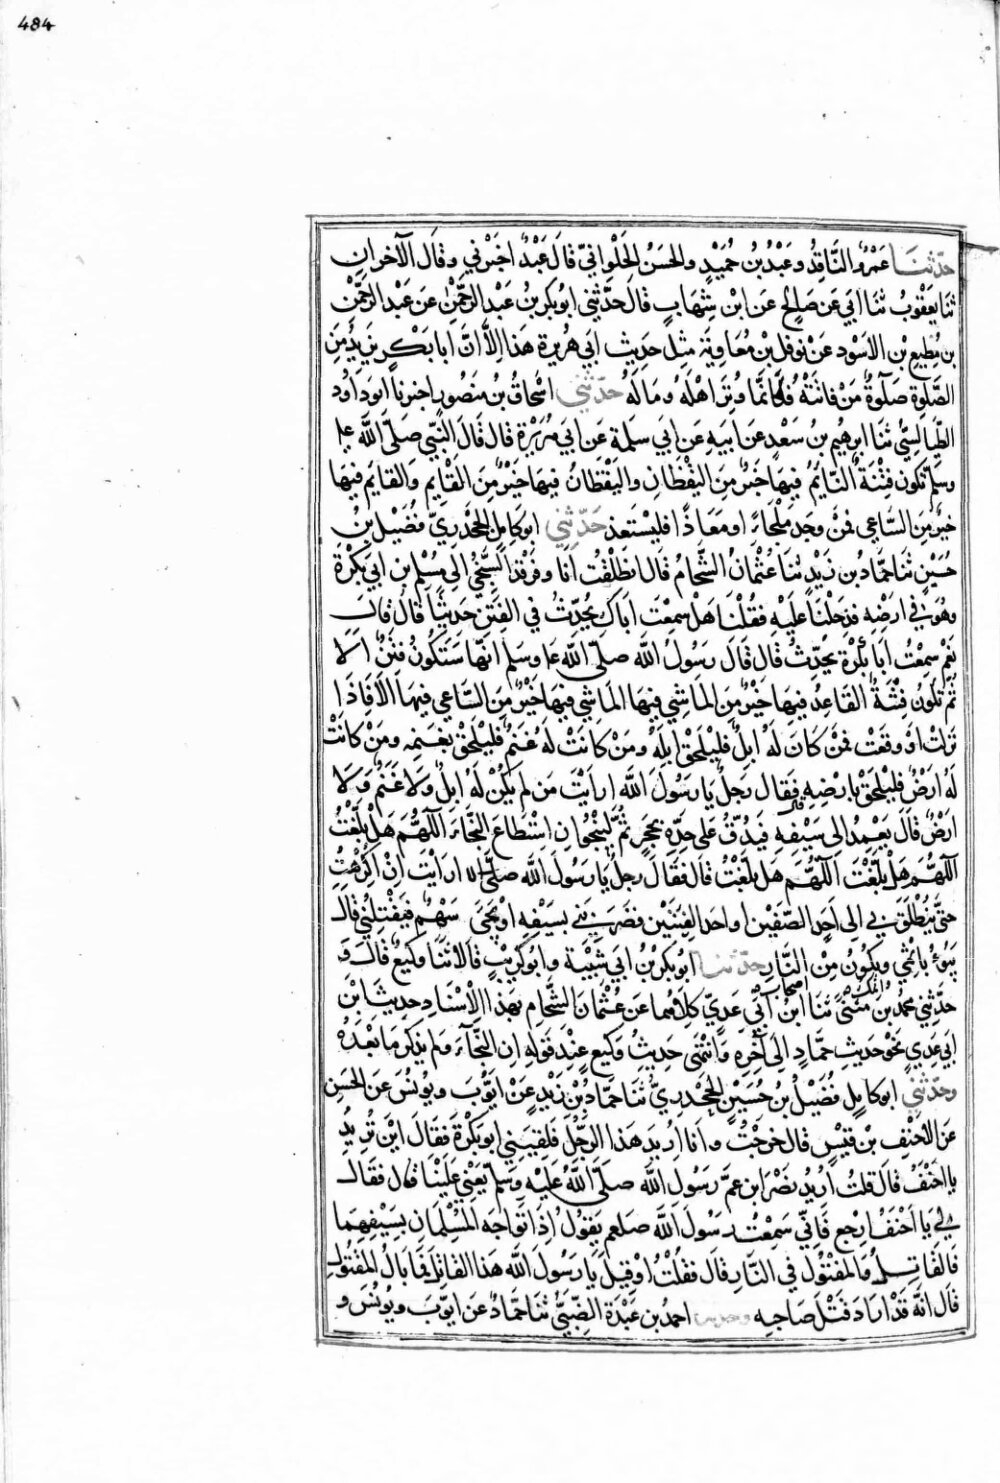 484
حدّثنا عَمْرٌو النَّاقِدُ وعَبْدُ بْنُ حُمَيْدٍ والحَسَنُ الحَلْوانيّ قالَ عَبْدٌ اخبَرَني وقالَ الآخرانِ
ثنا يَعْقُوبُ ثنا ابي عَن صَالحٍ عَن ابْنِ شِهَابٍ قالَ حدّثني ابوبكر بنُ عَبْدِ الرَّحمْنِ عَن عَبْدِ الرَّحمْنِ
بن مُطِيعِ بْنِ الاَسْوَدِ عَنْ نَوْفَلِ بْنِ مُعَاوِيَةَ مِثلَ حَدِيثِ ابي هُرَيرةَ هَذَا اِلاَّ انَّ ابا بَكْرٍ يَزيدُ مِنَ
الصَّلوةِ صَلَوةٌ مَنْ فاتَتْهُ فَكَانَّمَا وُتِرَ اَهْلَهُ ومَا لَهُ حدّثني اسْحَاقُ بنُ مَنصُورٍ اخبرنا ابوداود
الطّيَالِسيّ ثنا ابرهيم بنُ سَعْدٍ عَن ابيهِ عَن ابي سلمة عَن ابي هُرَيْرَة قالَ قَالَ النَّبِيّ صلّى الله عل
وسَلّم تكون فِتْنَةٌ النَّايمُ فِيهَا خَيْرٌ مِنَ اليَقْظَانِ واليَقْظَانُ فِيهَا خَيْرٌ مِنَ القَايِمِ والقايم فيهَا
خيرٌ مِنَ السَّاعِي فمَنْ وَجَدَ مَلْجَاءً اومَعَاذًا فليَسْتَعِذ حَدّثني ابوكامِل الجحْدَريّ فُضَيْل بنُ
حُسَيْنٍ ثنا حمَّاد بن زَيْدٍ ثنا عُثْمَانُ الشَّحَّامُ قالَ انطَلَقْتُ أنا وفَرْقَدٌ السَّبَخيُّ الى مُسْلِم بن ابي بَكْرَة
وهُوَ في ارْضِهِ فَدَخَلْنَا عَلَيْهِ فقُلْنَا هَلْ سمِعْتَ اَباكَ يُحدِّثُ في الفِتَنِ حَديثًا قالَ قالَ
نَعَم سمِعْتُ اَبا بَكْرَة يُحدِّثُ قال قَالَ رسولُ الله صلّى الله عل وسلم انَّها سَتَكُونُ فِتَنٌ اَلاَ
ثُمّ تكون فِتْنَةٌ القَاعِدُ فِيهَا خَيْرٌ مِنَ المَاشِي فِيهَا المَاشِي فِيهَا خَيْرٌ مِنَ السَّاعِي فيهَا اَلاَ فَاِذَا
نَزَلَتْ اَوْ وَقَعَتْ فَمَنْ كانَ لَهُ ابِلٌ فَليَلْحَقْ بابِلِه ومَنْ كَانَتْ لَهُ غَنَمٌ فَليَلْحَقْ بِغَنَمِهِ ومَنْ كانَتْ
لَهُ ارَضٌ فليَلْحَقْ بِارْضِهِ فقال رَجلٌ يا رَسُولَ الله ارايْتَ مَن لم يَكُنْ لَهُ ابِلٌ ولاَ غَنَمٌ ولا
ارْضٌ قالَ يَعْمِدُ الى سَيْفِهِ فَيَدُقُّ عَلى حدِّه بِحَجَرٍ ثُمَّ ليَنْجُ ان اسْتَطاعَ النَّجَاءَ اللّهُمَّ هَلْ بَلّغْتُ
اللّهُمَّ هَلْ بَلّغْتُ اللّهُمّ هَل بَلّغْتُ قالَ فقَالَ رَجلٌ يا رَسولَ الله صلّى الله ارايْتَ اِنْ اُكْرِهْتُ
حتّى يُنْطَلَقَ بي الى اَحَدِ الصّفَّيْن او احدى الفِئَتَيْن فضَرَبَني بسَيْفِهِ اويَجيءُ سَهْمٌ فَيَقْتُلُني قالَ
يَبُوءُ باِثمي ويَكُونُ مِنْ النَّارِ حدّثنا ابُوبَكرِ بْنُ ابي شَيْبَة وابوكُرَيْبٍ قالاَ ثَنا وَكيعٌ قالَ وَ
حدَّثني محمدُ بن مُثنّى ثنا ابنُ ابي عَدِيّ كِلاَهُما عَن عُثْمَانَ الشَّحَّامِ بهَذا الاِسْنَادِ حديث ابْنِ
ابي عَدِيّ نَحْوَ حَديثِ حمّادٍ الى آخِرِه وانتَهى حَديثُ وَكيعٍ عِنْدَ قولِهِ ان النَّجَآءَ ولم يذكر مَا بعْدَهُ
وحدّثني ابوكامِلٍ فُضَيْلُ بنُ حُسَيْنٍ الجَحْدريُّ ثنا حمّادُ بْنُ زَيْدٍ عَنْ ايُّوبَ ويُونُسَ عَنِ الحَسَنِ
عَن الاحْنَفِ بْنِ قَيْسٍ قالَ خرجْتُ وانا اُريدُ هَذا الرجُلَ فلقِيَني ابو بَكْرَة فقال اَيْن تُريدُ
يا احْنَفُ قال قلتُ اُريدُ نَصْرَ ابن عمّ رسُولِ الله صلّى اللّه عليْهِ وسلّم يعْني عَليًّا قال فقالَ
لي يا اَحْنَفُ ارجع فانّي سَمِعْتُ رَسُولَ اللّه صلعم يقُولُ إذا تَواجَه المُسْلِمَانِ بسَيْفِهِمَا
فَالقاتِلُ والمقتُول في النّارِ قالَ فقُلْتُ اوقِيلَ يا رسُولَ الله هَذا القاتِلُ فما بَالُ المقْتُولِ
قال انّهُ قدْ ارادَ قَتْلَ صَاحِبِه وحدثنا احمدُ بن عَبْدَة الضَّبيّ ثنا حمّادٌ عَن ايّوبَ ويُونُسَ و